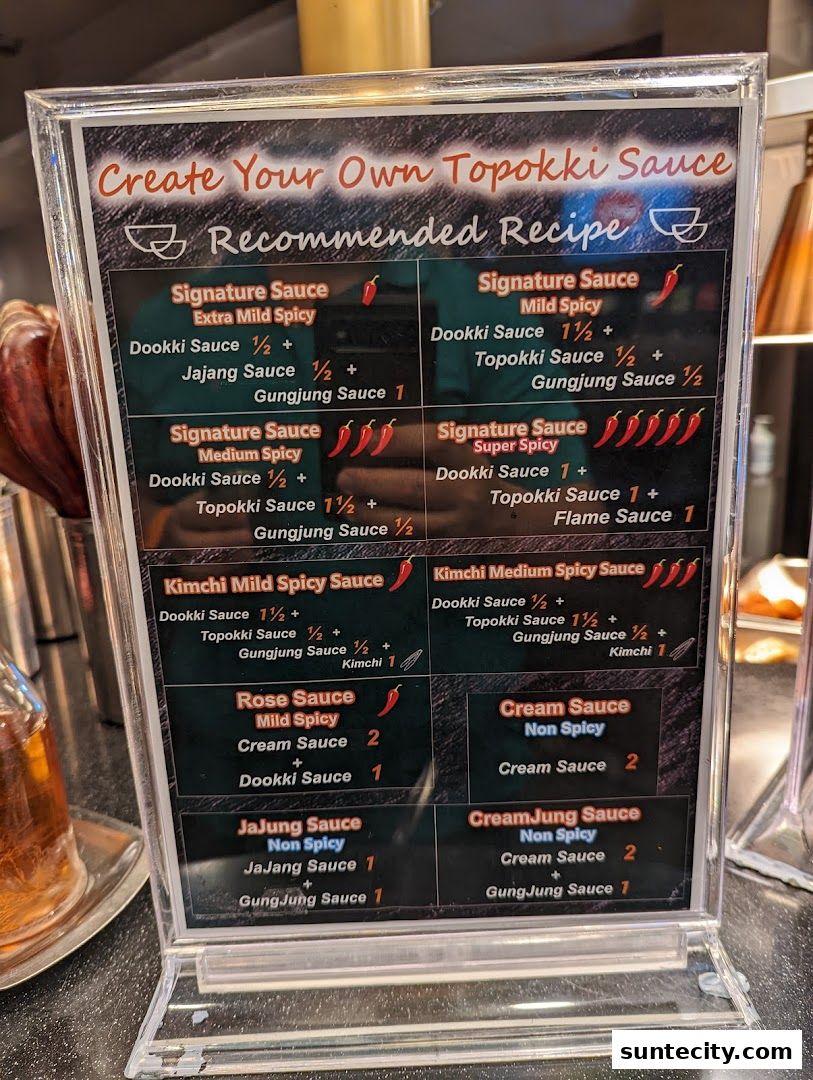 Create Your Own Topokki Sauce
Recommended Recipe
Signature Sauce
Extra Mild Spicy
Dookki Sauce ½ +
Jajang Sauce ½ +
Gungjung Sauce 1
Signature Sauce
Mild Spicy
Dookki Sauce 1½ +
Topokki Sauce ½ +
Gungjung Sauce ½
Signature Sauce
Medium Spicy
Dookki Sauce ½ +
Topokki Sauce 1½ +
Gungjung Sauce ½
Signature Sauce
Super Spicy
Dookki Sauce 1 +
Topokki Sauce 1 +
Flame Sauce 1
Kimchi Mild Spicy Sauce
Dookki Sauce 1½ +
Topokki Sauce ½ +
Gungjung Sauce ½ +
Kimchi 1
Kimchi Medium Spicy Sauce
Dookki Sauce ½ +
Topokki Sauce 1½ +
Gungjung Sauce ½ +
Kimchi 1
Rose Sauce
Mild Spicy
Cream Sauce 2
+
Dookki Sauce 1
Cream Sauce
Non Spicy
Cream Sauce 2
JaJung Sauce
Non Spicy
JaJang Sauce 1
+
GungJung Sauce 1
CreamJung Sauce
Non Spicy
Cream Sauce 2
+
GungJung Sauce 1
suntecity.com